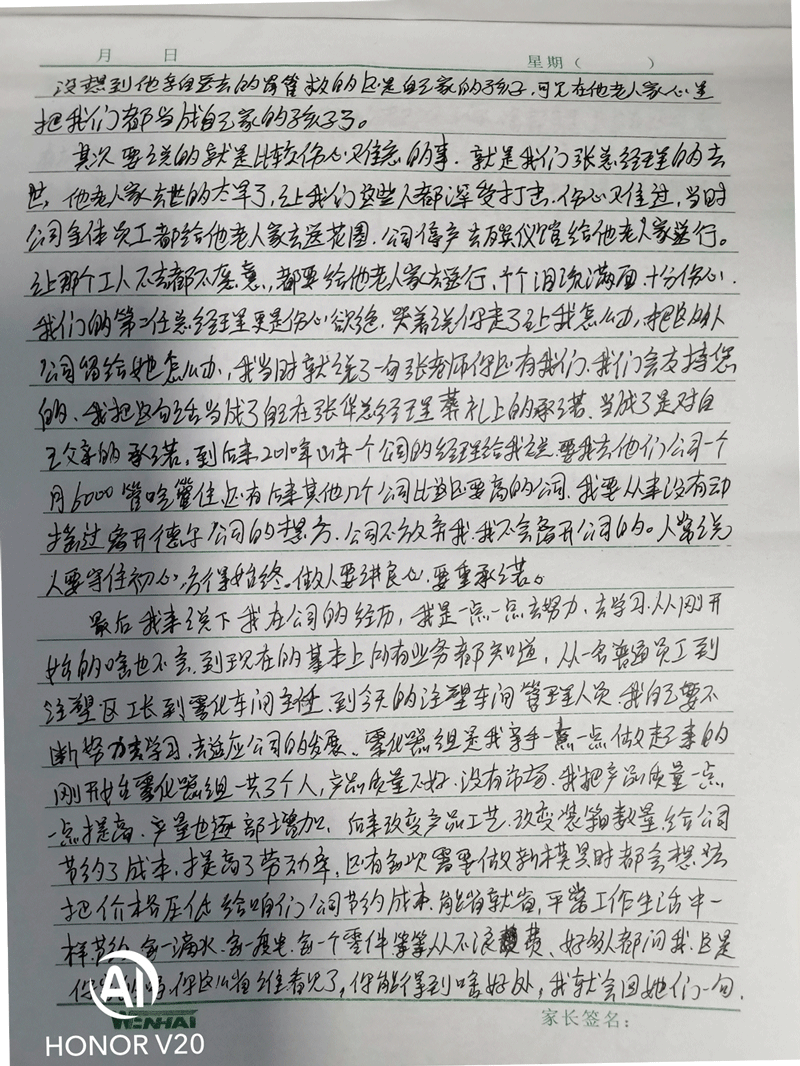 月 日 星期( )
没想到他亲自送去的胃管救的还是自己家的孩子,可见在他老人家心里
把我们都当成自己家的孩子了。
其次要说的就是比较伤心又难忘的事.就是我们张总经理的去
世,他老人家去世的太早了,让我们这些人都深受打击.伤心又难过,当时
公司全体员工都给他老人家去送花圈.公司停产去殡仪馆给他老人家送行。
让那个工人不去都不愿意,都要给他老人家去送行,个个泪流满面.十分伤心.
我们的第二任总经理更是伤心欲绝.哭着说你走了让我怎么办,把这
公司留给她怎么办,我当时就说了一句张老师你还有我们.我们会支持您
的、我把这句话当成了自己在张华总经理葬礼上的承诺.当成了是对自
己父亲的承诺,到后来2010年山东一个公司的经理给我说.要我去他们公司一个
月6000管吃管住,还有后来其他几个公司比这还要高的公司.我要从来没有动
摇过离开德尔公司的想法.公司不放弃我.我不会离开公司的。人常说
人要守住初心,方得始终。做人要讲良心,要重承诺。
最后我来说下我在公司的经历,我是一点一点去努力.去学习.从刚开
始的啥也不会.到现在的基本上所有业务都知道,从一名普通员工到
注塑区工长到雾化车间主任.到今天的注塑车间管理人员.我自己要不
断努力去学习.去适应公司的发展、雾化器组是我亲手一点一点做起来的
刚开始雾化器组一共了个人,产品质量不好.没有市场.我把产品质量一点
一点提高.产量也逐部增加.后来改变产品工艺.改变装箱数量.给公司
节约了成本.提高了劳动率,还有每次需要做新模具时都会想法
把价格压低给咱们公司节约成本.能省就省,平常工作生活中一
样节约.每一滴水.每一度电.每一个零件等等从不浪费、好多人都问我.
你这么省谁看见了,你能得到啥好处,我就会回她们一句.
WENHAI 家长签名:
AI
HONOR V20